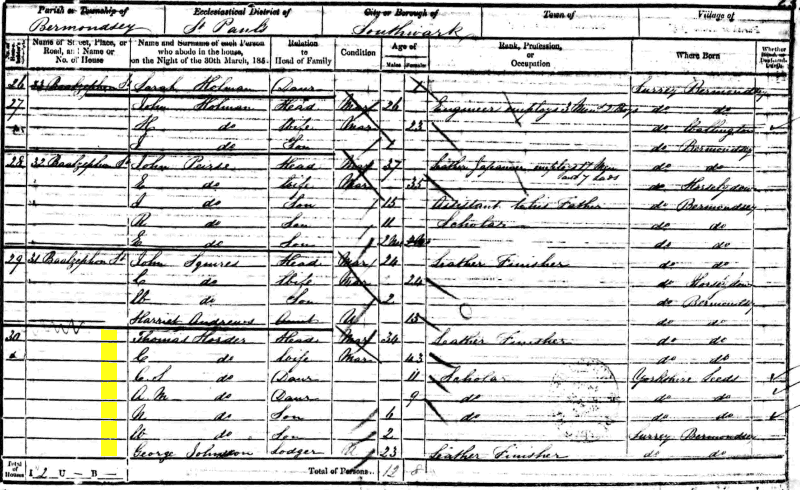 Parish or Township of Ecclesiastical District of City or Borough of Town Village of
Bermondsey St Pauls Southwark
Name of Street, Place, or Road, and Name or No. of House
Name and Surname of each Person who abode in the house, on the Night of the 30th March, 185
Relation to Head of Family
Condition
Age of
Males Females
Rank, Profession, or Occupation
Where Born
Whether
26 33 Baalzephon St Sarah Holman Daur Surrey Bermondsey
27 John Holman Head Mar 26 Engineer employed do do
H do Wife Mar 23 do
J do Son do Bermondsey
28 32 Baalzephon St John Peirse Head Mar 37 Leather Japanner do do
E do Wife Mar 35 do Horselydown
J do Son 15 Assistant to his Father do Bermondsey
R do Son 11 Scholar do do
E do Son do do
29 31 Baalzephon St John Squires Head Mar 24 Leather Finisher do do
C do Wife Mar 24 do
W do Son 2 do Bermondsey
Harriet Andrews Aunt U 15 do do
30 Thomas Horder Head Mar 34 Leather Finisher do do
C do Wife Mar 43 do do
C S do Daur 11 Scholar Yorkshire Leeds
A M do Daur 9 do do do
N do Son 6 do do do
W do Son 2 Surrey Bermondsey
George Johnson Lodger U 23 Leather Finisher do do
Total of Houses I 2 U - B - Total of Persons 12 8